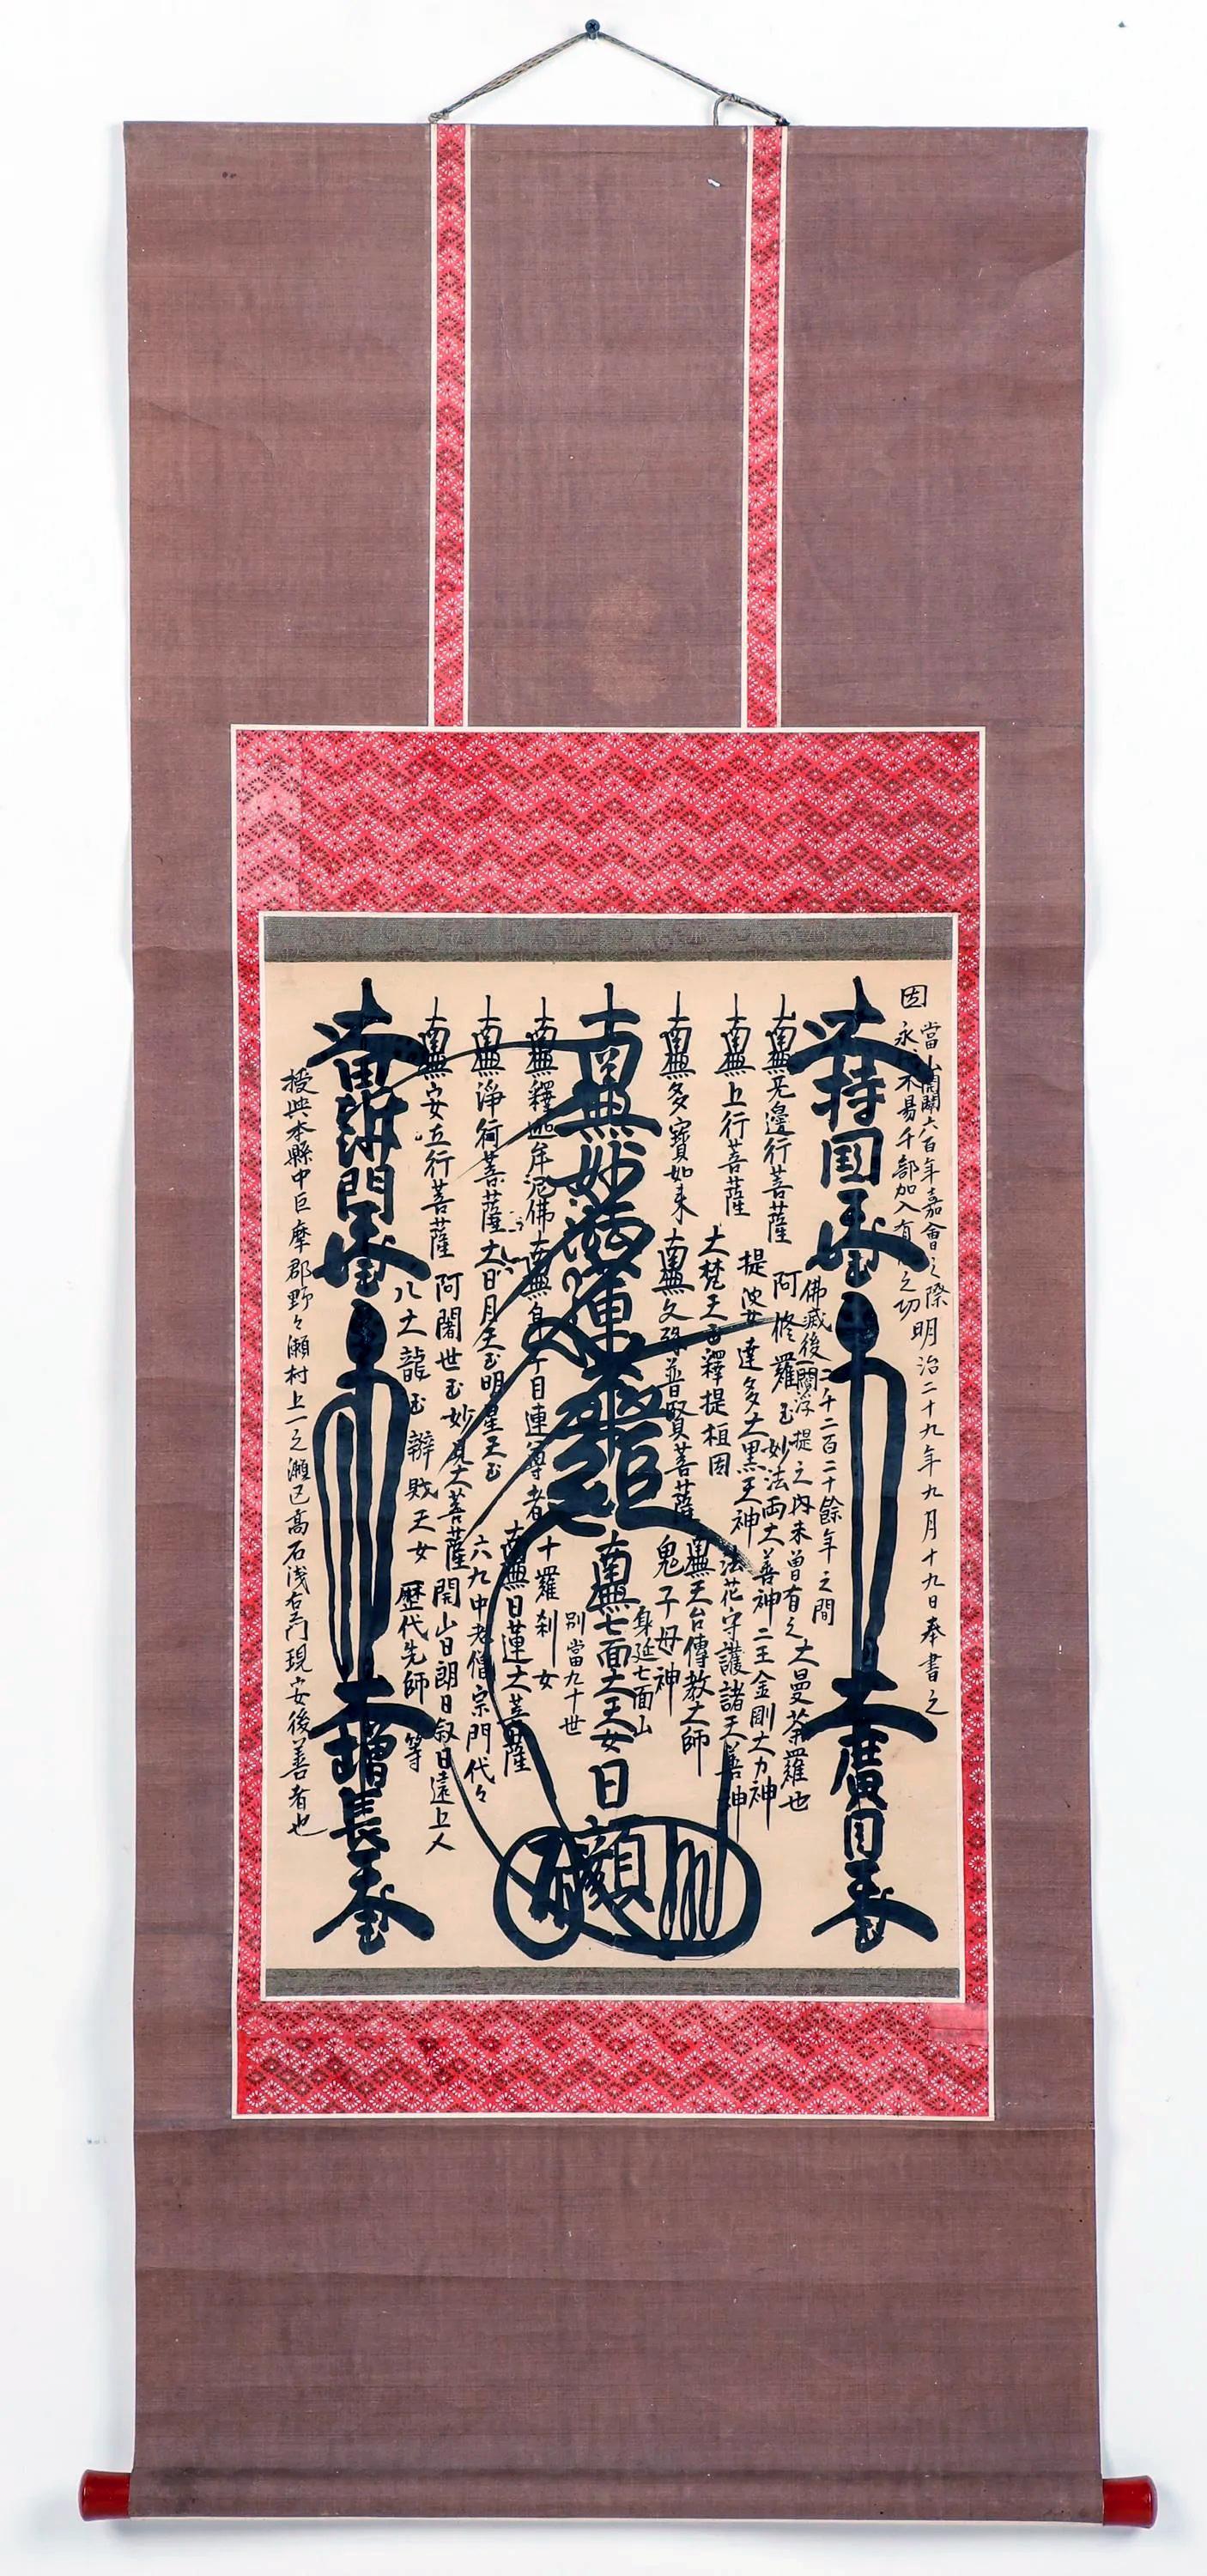 因
當山開闢六百年嘉會之際
永代不易千部加入有之切
明治二十九年九月十九日奉書之
大持国天王
大廣目天王
佛滅後二千二百二十餘年之間
一閻浮提之内未曽有之大曼荼羅也
南無无邊行菩薩
阿修羅王
妙法両大善神
二王金剛大力神
南無上行菩薩
提婆達多
大黒天神
法花守護諸天善神
大梵天王
釋提桓因
南無天台傳教大師
南無多寶如来
南無文殊普賢菩薩
鬼子母神
南無妙法蓮華經
南無七面大天女
身延七面山
別當九十世
日顗
南無釋迦牟尼佛
南無身子目連尊者
十羅刹女
南無淨行菩薩
大日月天王明星天王
南無日蓮大菩薩
六九中老僧宗門代々
南無安立行菩薩
阿闍世王
妙見大菩薩
開山日朗日叙日遠上人
八大龍王
辨財天女
歴代先師等
大毘沙門天王
大増長天王
授與本縣中巨摩郡野々瀬村上一之瀬区高石浅右門現安後善者也